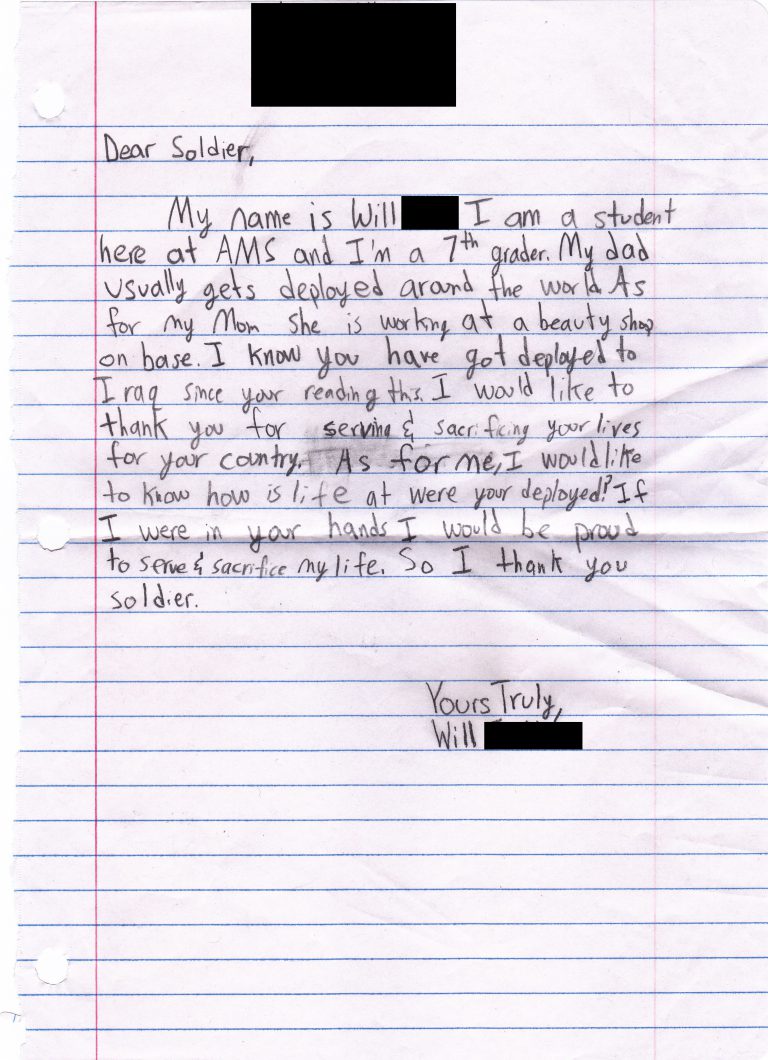 Dear Soldier,
My name is Will I am a student
here at AMS and I'm a 7th grader. My dad
usually gets deployed around the world. As
for my Mom she is working at a beauty shop
on base. I know you have got deployed to
Iraq since your reading this. I would like to
thank you for serving & sacrificing your lives
for your country. As for me, I would like
to know how is life at were your deployed? If
I were in your hands I would be proud
to serve & sacrifice my life. So I thank you
soldier.
Yours Truly,
Will